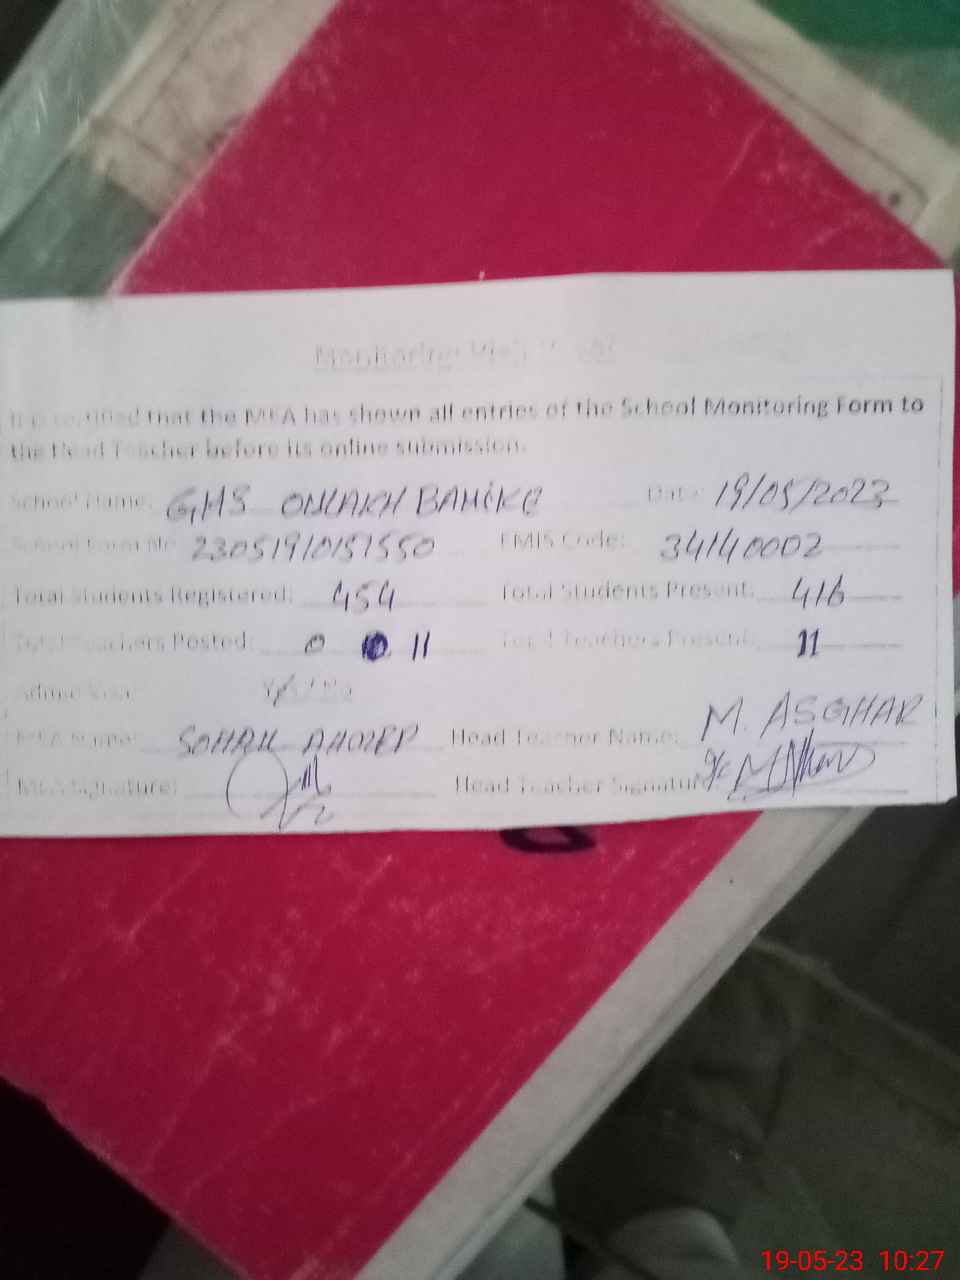 Monitoring Visit
It is certified that the MEA has shown all entries of the School Monitoring Form to
the Head Teacher before its online submission.
School Name: GHS Date: 19/05/2023
School Form No 230519/0151550 EMIS Code: 34140002
Total Students Registered: 454 Total Students Present: 416
Total Teachers Posted: 0 11 Total Teachers Present: 11
Yes / No
MEA Name: SOHAIL AHMED Head Teacher Name: M. ASGHAR
MEA Signature: Head Teacher Signature
19-05-23 10:27